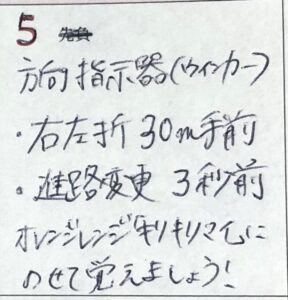 5
方向指示器(ウィンカー)
・右左折 30m手前
・進路変更 3秒前
オレンジレンジ キリキリマイに
のせて覚えましょう!